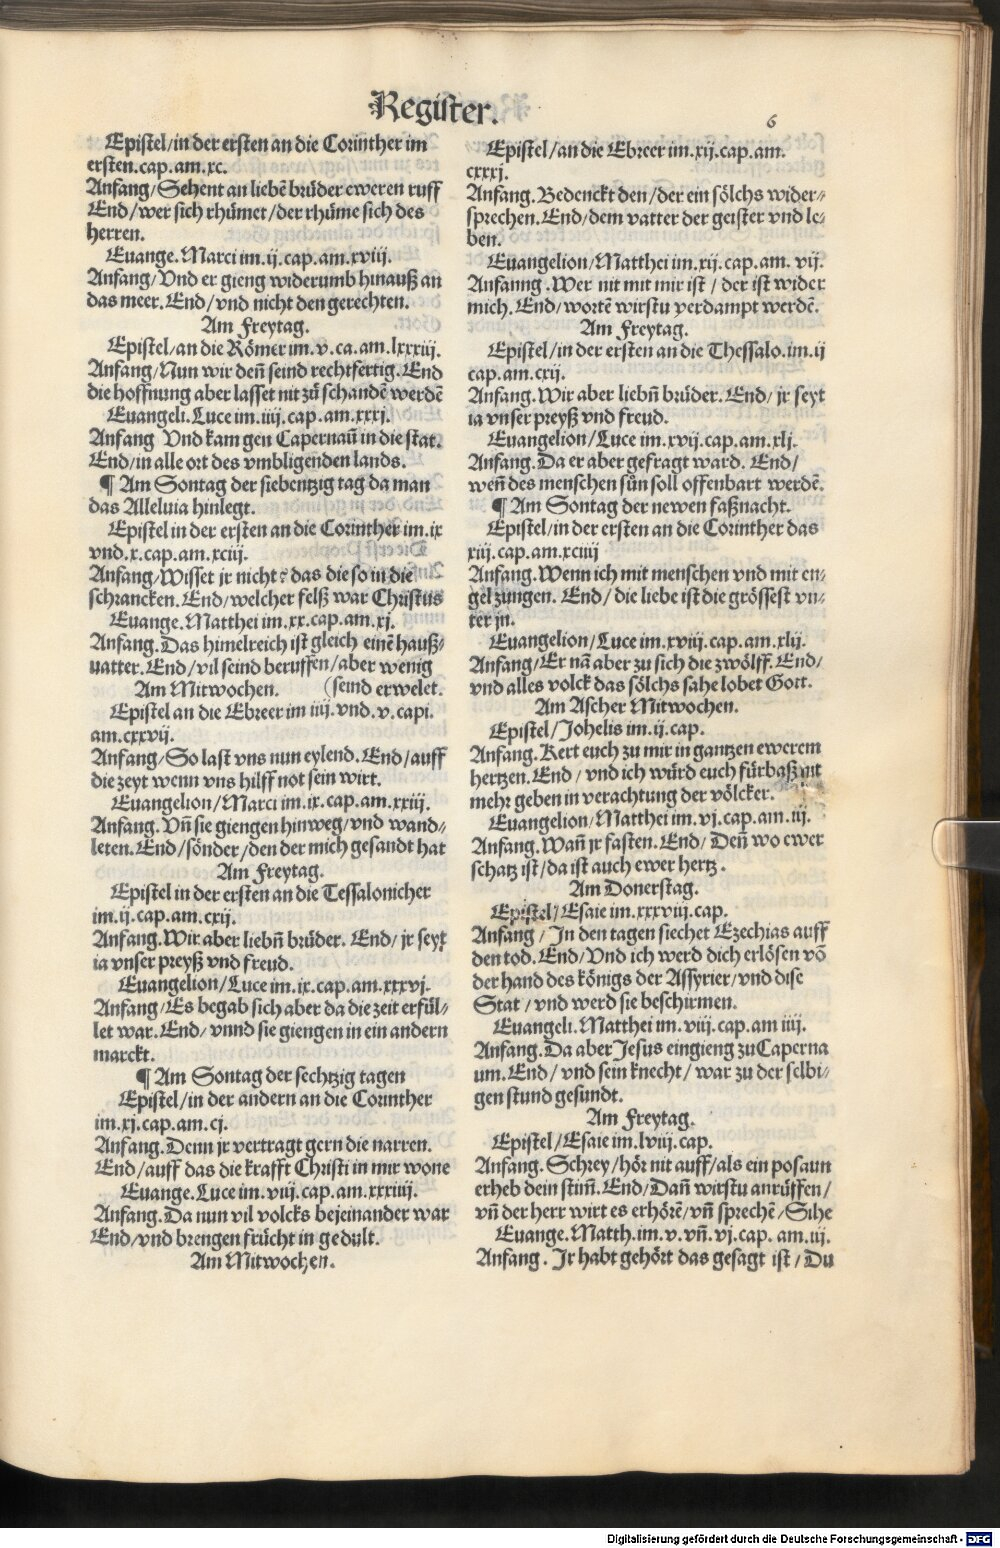 Register.
6
Epistel/in der ersten an die Corinther im
ersten.cap.am.xc.
Anfang/Sehent an liebē brüder eweren ruff
End/wer sich rhümet/der rhüme sich des
herren.
Euange.Marci im.ij.cap.am.xviij.
Anfang/Vnd er gieng widerumb hinauß an
das meer.End/vnd nicht den gerechten.
Am Freytag.
Epistel/an die Römer im.v.ca.am.lxxxiij.
Anfang/Nun wir deñ seind rechtfertig.End
die hoffnung aber lasset nit zů schandē werdē
Euangeli.Luce im.iiij.cap.am.xxxj.
Anfang Vnd kam gen Capernaū in die stat.
End/in alle ort des vmbligenden lands.
¶ Am Sontag der siebentzig tag da man
das Alleluia hinlegt.
Epistel in der ersten an die Corinther im.ix
vnd.x.cap.am.xciij.
Anfang/Wisset jr nicht? das die so in die
schrancken.End/welcher felß war Christus
Euange.Matthei im.xx.cap.am.xj.
Anfang.Das himelreich ist gleich einē hauß-
uatter.End/vil seind beruffen/aber wenig
Am Mitwochen. (seind erwelet.
Epistel an die Ebreer im iiij.vnd.v.capi.
am.cxxvij.
Anfang/So last vns nun eylend.End/auff
die zeyt wenn vns hilff not sein wirt.
Euangelion/Marci im.ix.cap.am.xxiij.
Anfang.Vñ sie giengen hinweg/vnd wand-
leten.End/sönder/den der mich gesandt hat
Am Freytag.
Epistel in der ersten an die Tessalonicher
im.ij.cap.am.cxij.
Anfang.Wir aber liebñ brüder. End/jr seyt
ia vnser preyß vnd freud.
Euangelion/Luce im.ix.cap.am.xxxvj.
Anfang/Es begab sich aber da die zeit erfül-
let war.End/vnnd sie giengen in ein andern
marckt.
¶ Am Sontag der sechtzig tagen
Epistel/in der andern an die Corinther
im.xj.cap.am.cj.
Anfang.Denn jr vertragt gern die narren.
End/auff das die krafft Christi in mir wone
Euange.Luce im.viij.cap.am.xxxiiij.
Anfang.Da nun vil volcks bejeinander war
End/vnd brengen frücht in gedult.
Am Mitwochen.
Epistel/an die Ebreer im.xij.cap.am.
cxxxj.
Anfang.Bedenckt den/der ein sölchs wider-
sprechen.End/dem vatter der geister vnd le-
ben.
Euangelion/Matthei im.xij.cap.am. vij.
Anfanng.Wer nit mit mir ist/der ist wider
mich.End/wortē wirstu verdampt werdē.
Am Freytag.
Epistel/in der ersten an die Thessalo.im.ij
cap.am.cxij.
Anfang.Wir aber liebñ brüder.End/jr seyt
ia vnser preyß vnd freud.
Euangelion/Luce im.xvij.cap.am.xlj.
Anfang.Da er aber gefragt ward. End/
weñ des menschen sün soll offenbart werdē.
¶ Am Sontag der newen faßnacht.
Epistel/in der ersten an die Corinther das
xiij.cap.am.xciiij
Anfang.Wenn ich mit menschen vnd mit en-
gel zungen. End/die liebe ist die grössest vn-
ter jn.
Euangelion/Luce im.xviij.cap.am.xlij.
Anfang/Er nā aber zu sich die zwölff.End/
vnd alles volck das sölchs sahe lobet Gott.
Am Ascher Mitwochen.
Epistel/Johelis im.ij.cap.
Anfang.Kert euch zu mir in gantzen ewerem
hertzen.End/vnd ich würd euch fürbaß nit
mehr geben in verachtung der völcker.
Euangelion/Matthei im.vj.cap.am.iij.
Anfang.Wañ jr fasten.End/Deñ wo ewer
schatz ist/da ist auch ewer hertz.
Am Donerstag.
Epistel/Esaie im.xxxviij.cap.
Anfang/In den tagen siechet Ezechias auff
den tod.End/Vnd ich werd dich erlösen vō
der hand des königs der Assyrier/vnd dise
Stat/vnd werd sie beschirmen.
Euangeli.Matthei im.viij.cap.am iiij.
Anfang.Da aber Jesus eingieng zu Caperna
um.End/vnd sein knecht/war zu der selbi-
gen stund gesundt.
Am Freytag.
Epistel/Esaie im.lviij.cap.
Anfang.Schrey/hör nit auff/als ein posaun
erheb dein stim̄.End/Dañ wirstu anrüffen/
vñ der herr wirt es erhörē/vñ sprechē/Sihe
Euange.Matth.im.v.vñ.vj.cap. am.iij.
Anfang.Jr habt gehört das gesagt ist/Du
Digitalisierung gefördert durch die Deutsche Forschungsgemeinschaft - DFG